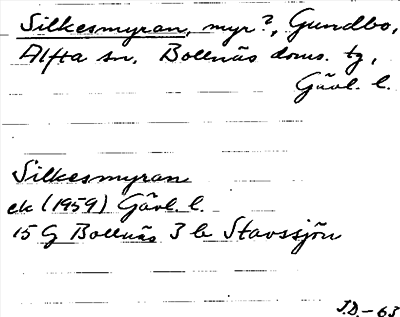 Silkesmyran, myr?, Gundbo,
Alfta sn, Bollnäs doms. tg,
Gävl. l.
Silkesmyran
ek (1959) Gävl. l.
15 G Bollnäs 3 b Stavssjön
J.D. - 63